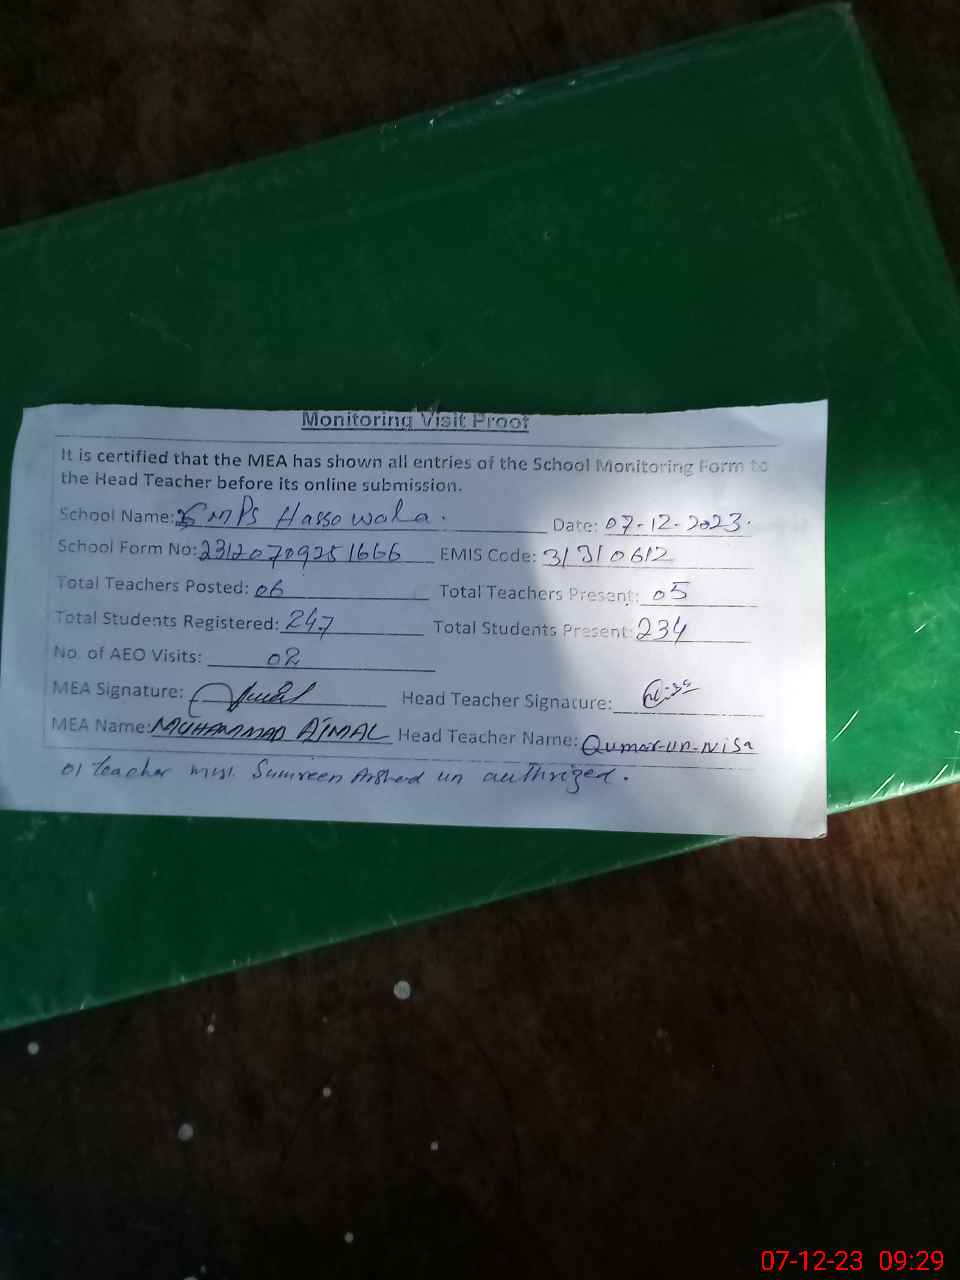 Monitoring Visit Proof
It is certified that the MEA has shown all entries of the School Monitoring Form to
the Head Teacher before its online submission.
School Name: GMPS Hassowala. Date: 07-12-2023.
School Form No: 23120709251666 EMIS Code: 31310612
Total Teachers Posted: 06 Total Teachers Present: 05
Total Students Registered: 247 Total Students Present: 234
No. of AEO Visits: 02
MEA Signature: Head Teacher Signature:
MEA Name: MUHAMMAD AJMAL Head Teacher Name: Qumar-un-Nisa
01 teacher Sumreen Arshad un authrized.
07-12-23 09:29